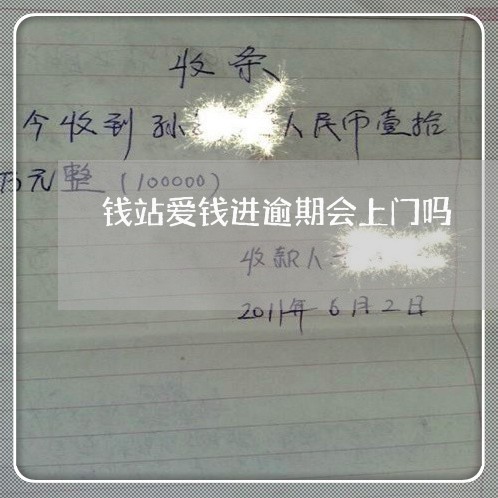 收条
今收到孙 人民币壹拾
万元整(100000)
钱站爱钱进逾期会上门吗
收款人
2011年6月2日